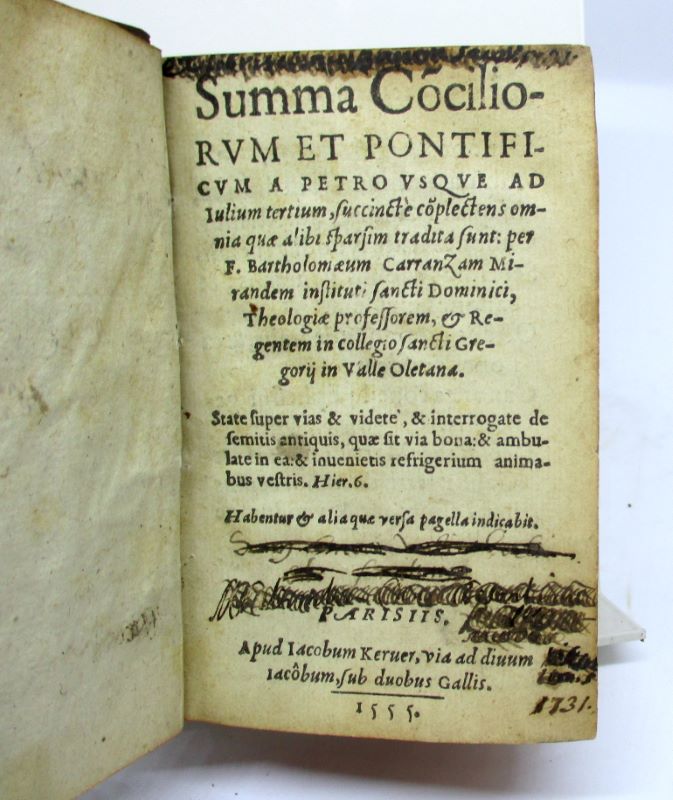 Summa Cõcilio-
RVM ET PONTIFI-
CVM A PETRO VSQVE AD
Iulium tertium, ſuccinctè cõplectens om-
nia quæ alibi ſparſim tradita ſunt: per
F. Bartholomæum Carranzam Mi-
randem inſtituti ſancti Dominici,
Theologiæ profeſſorem, & Re-
gentem in collegio ſancti Gre-
gorij in Valle Oletana.
State ſuper vias & videte, & interrogate de
ſemitis antiquis, quæ ſit via bona: & ambu-
late in ea: & inuenietis refrigerium anima-
bus veſtris. Hier. 6.
Habentur & alia quæ verſa pagella indicabit.
PARISIIS.
Apud Iacobum Keruer, via ad diuum
Iacôbum, ſub duobus Gallis.
1555.
1731.